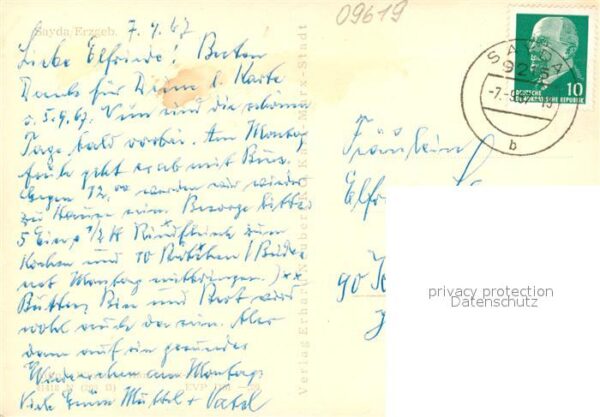 09619
Sayda Erzgeb.
7.9.67
Liebe Elfriede! Besten
Dank für Deine l. Karte
v. 5.9.67. Nun sind die schönen
Tage bald vorbei. Am Montag
früh geht es ab mit Bus.
Gegen 12,00 werden wir wieder
zu Hause sein. Besorge bitte
5 Eier, 1/2 K Rindfleisch zum
Kochen und 10 Brötchen
Montag mitbringen.)
Butter, Bier und Brot wird
wohl auch da sein. Also
dann auf ein gesundes
Wiedersehen am Montag.
Viele Grüße Muttel + Vatel
Verlag Erhard Neubert KG, Karl-Marx-Stadt
SAYDA
b
10
DEUTSCHE
DEMOKRATISCHE REPUBLIK
Fräulein
90
privacy protection
Datenschutz